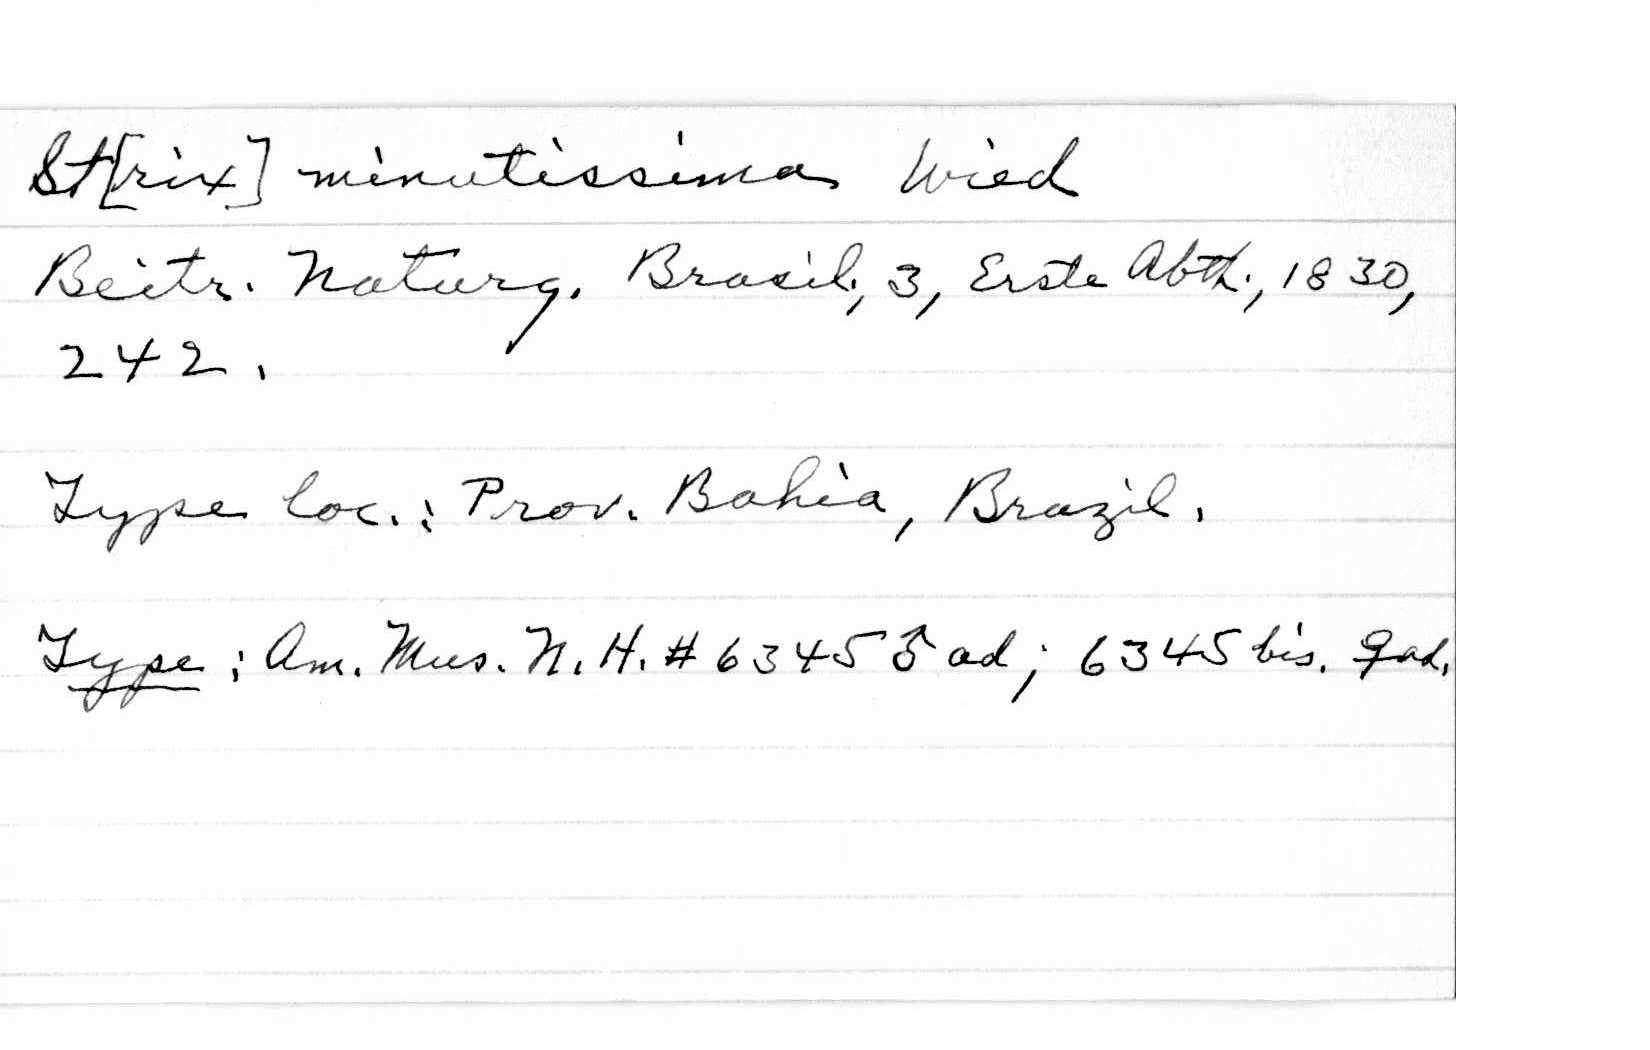 St[rix] minutissima Wied
Beitr. Naturg. Brasil, 3, Erste Abth., 1830,
242.
Type loc.: Prov. Bahia, Brazil.
Type: Am. Mus. N. H. # 6345 ♂ ad; 6345 bis. ♀ ad.